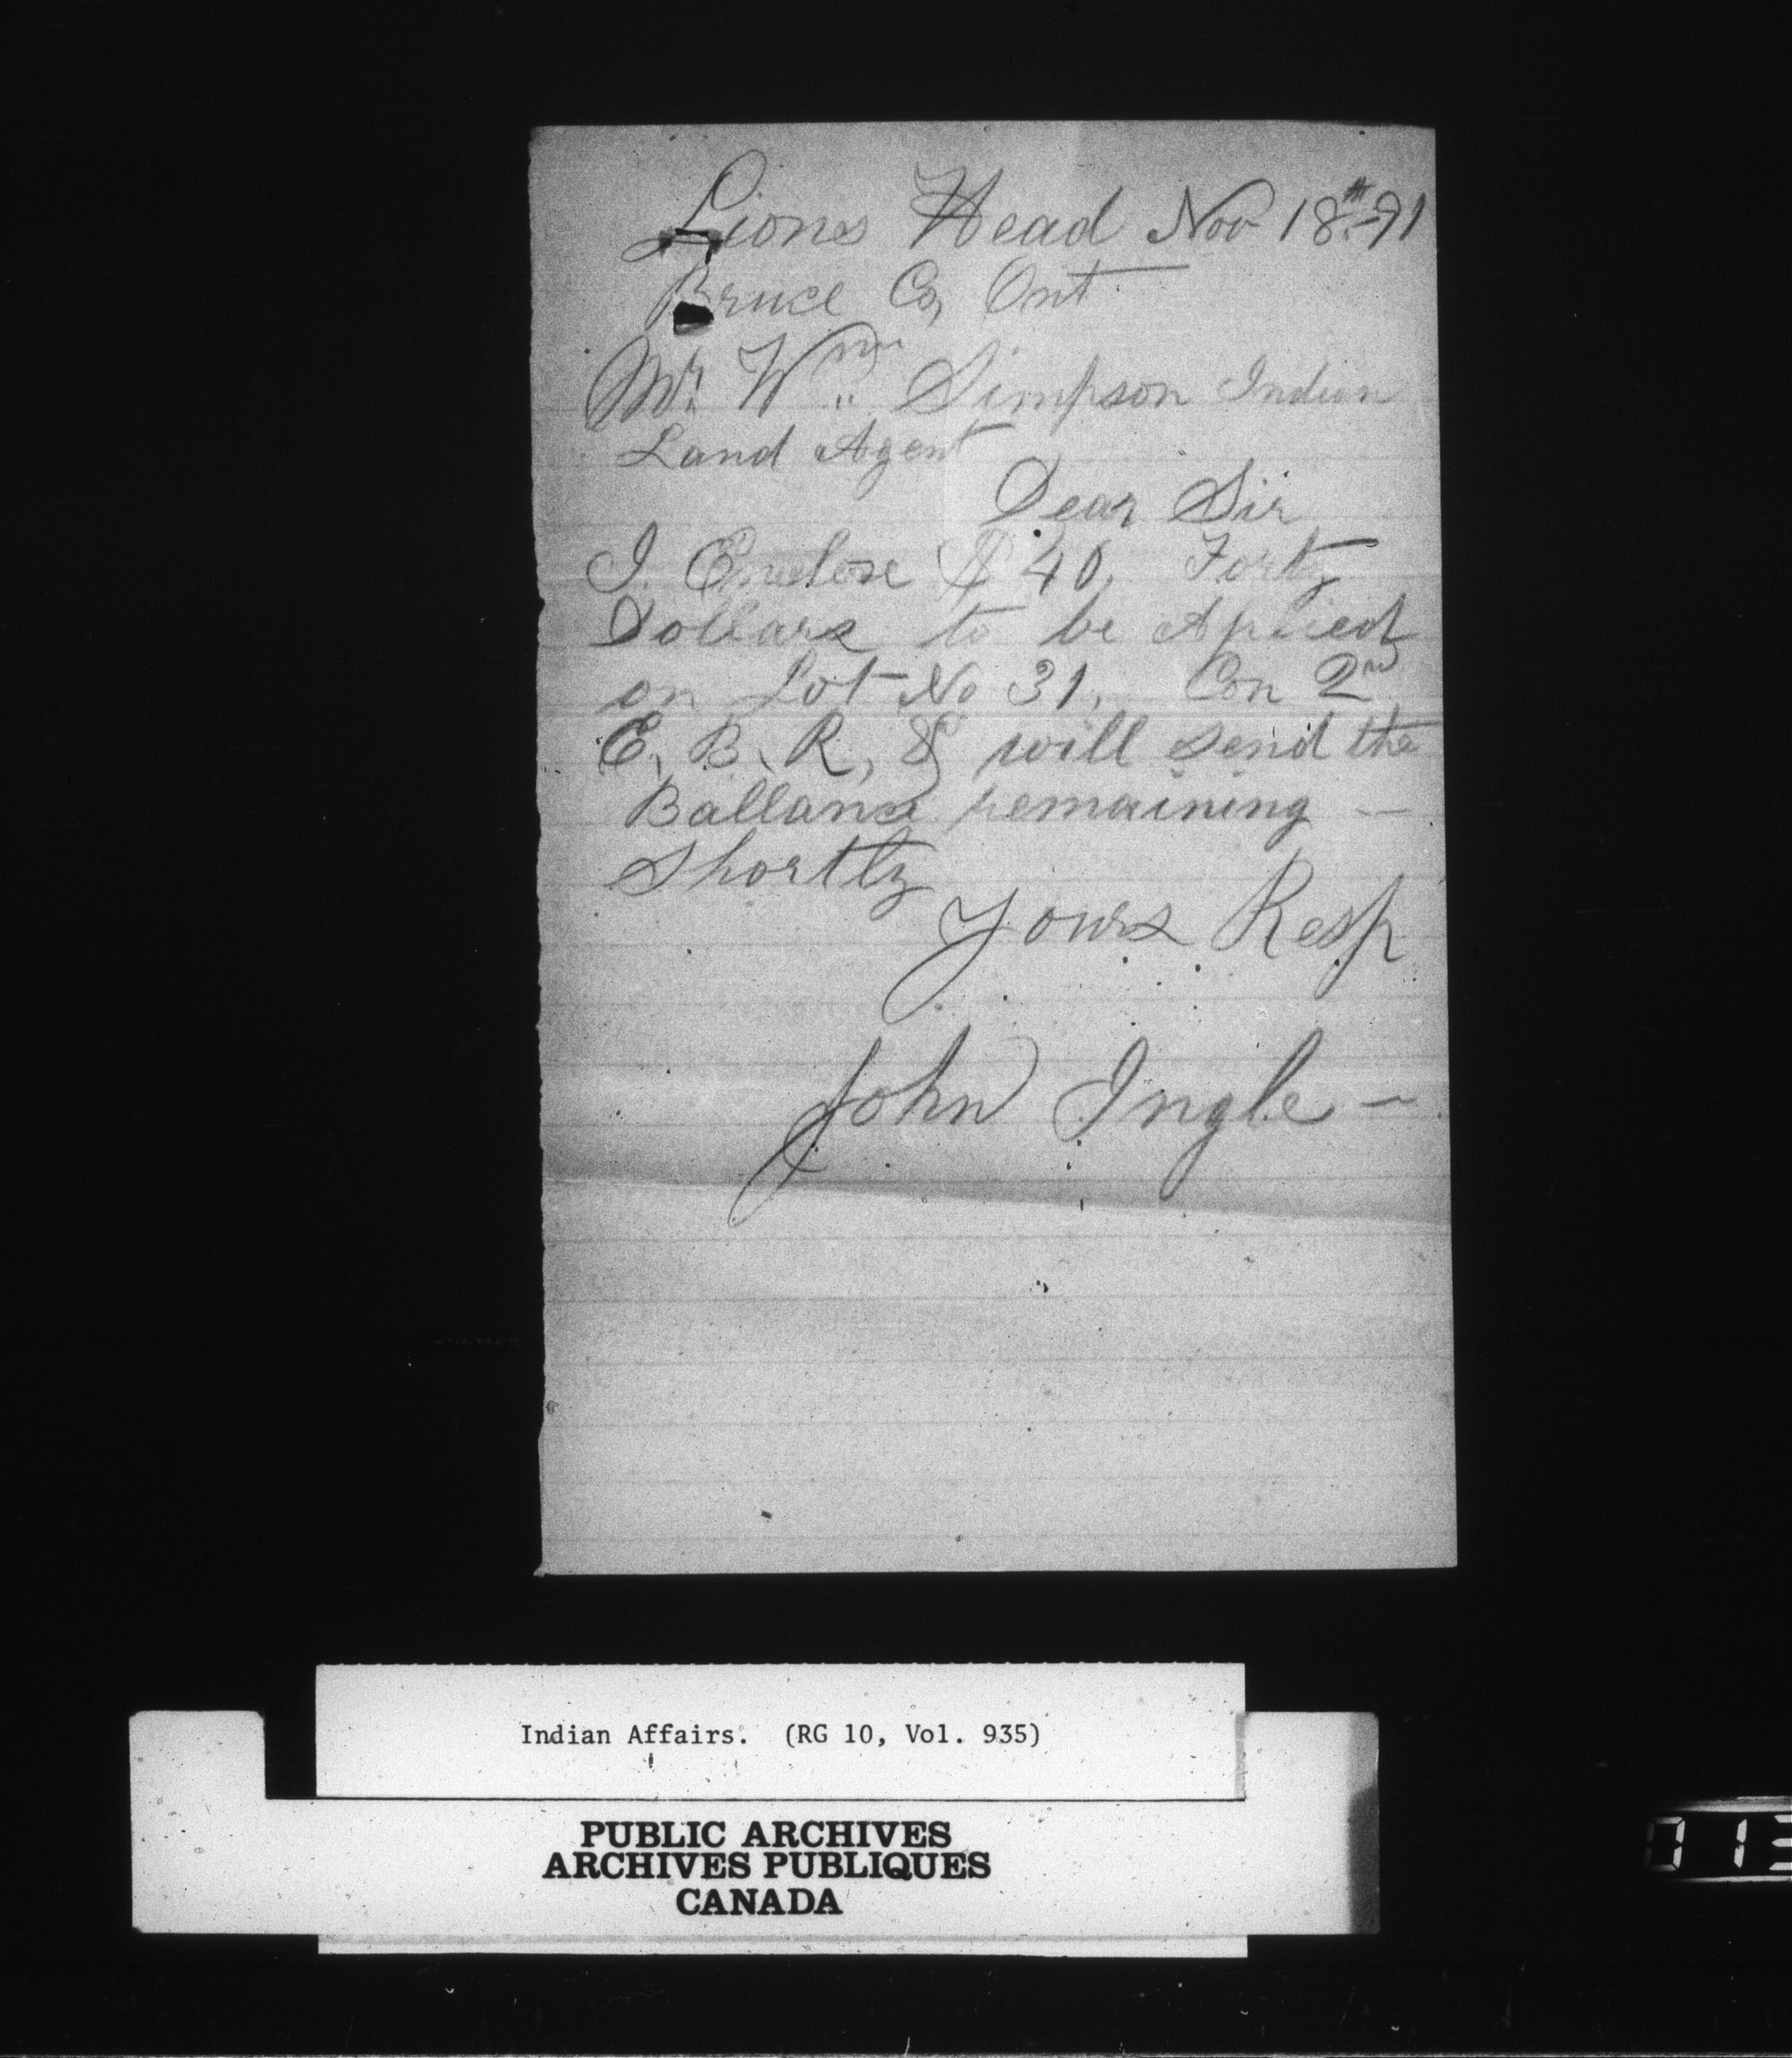 Lions Head Nov 18th 91
Bruce Co, Ont
Mr. Wm. Simpson Indian
Land Agent
Dear Sir
I. Enclose $40, Forty
Dollars to be Aplied
on Lot No 31, Con 2nd
E, B, R, & will send the
Ballance remaining —
Shortly
Yours Resp
John Ingle —
Indian Affairs. (RG 10, Vol. 935)
PUBLIC ARCHIVES
ARCHIVES PUBLIQUES
CANADA